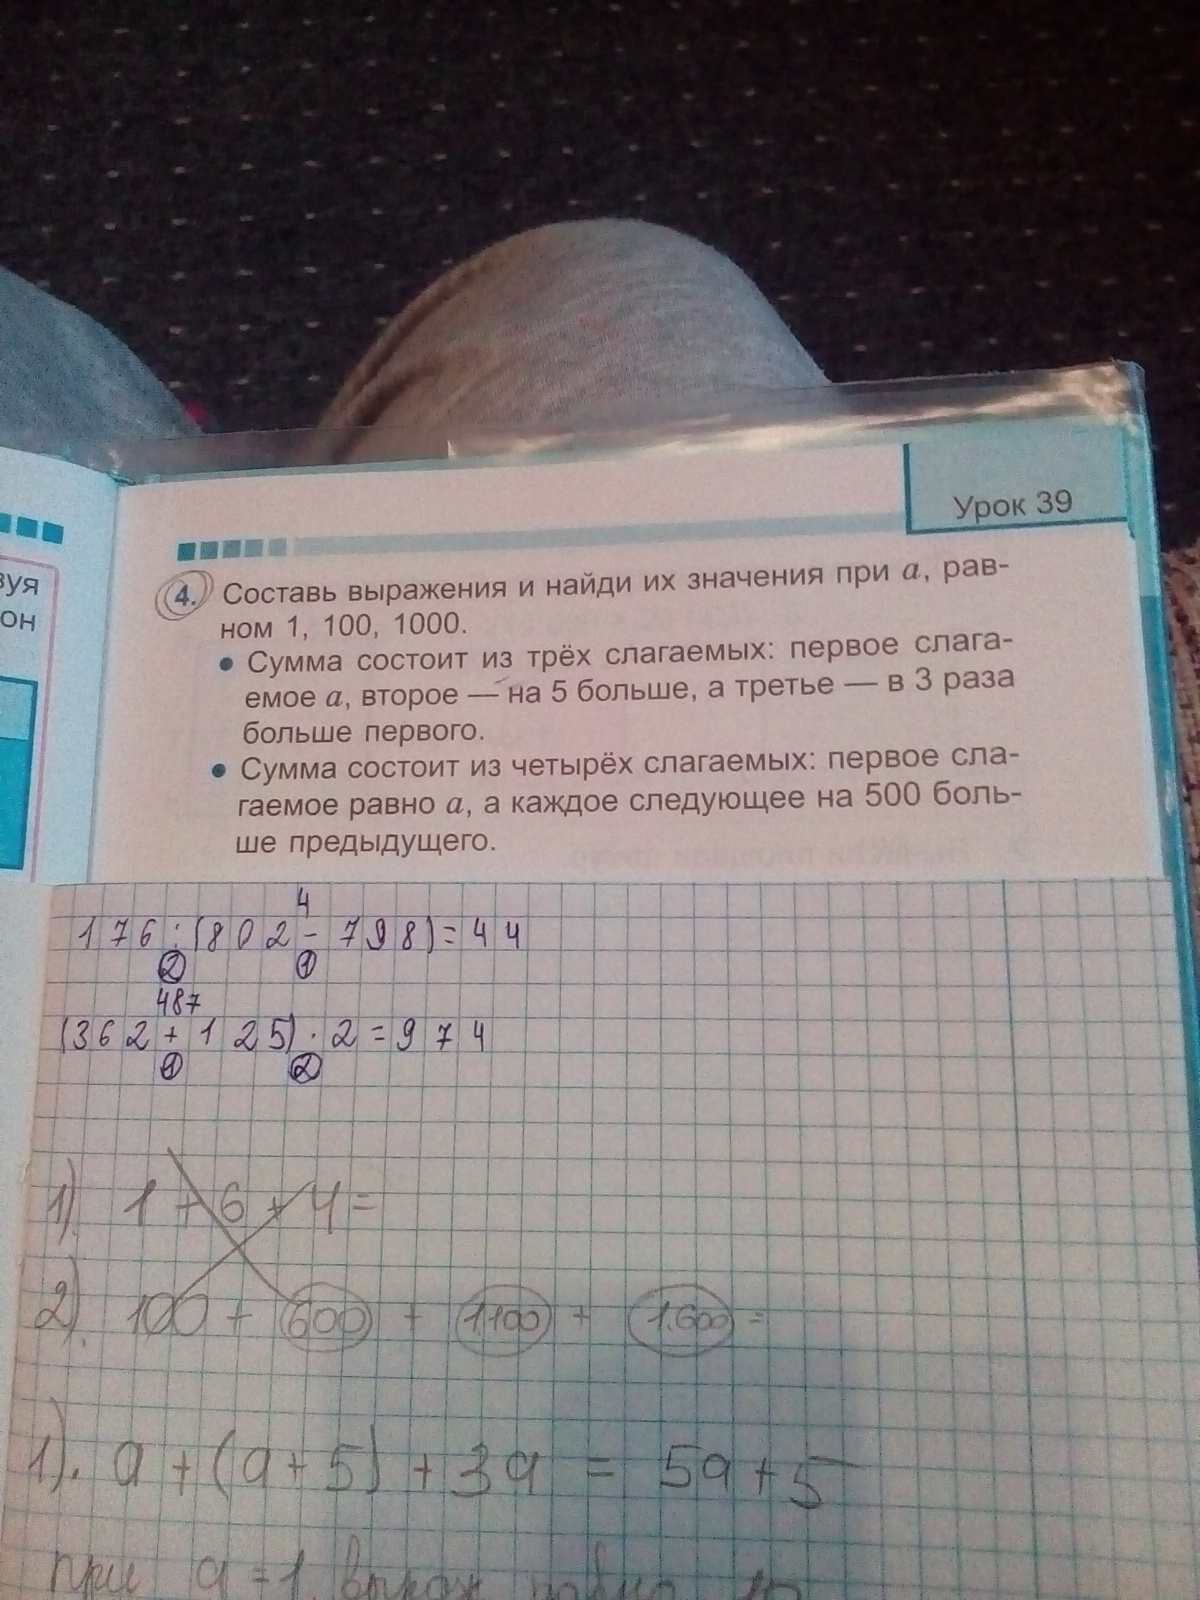 Урок 39
зуя
он
4. Составь выражения и найди их значения при a, рав-
ном 1, 100, 1000.
• Сумма состоит из трёх слагаемых: первое слага-
емое a, второе — на 5 больше, а третье — в 3 раза
больше первого.
• Сумма состоит из четырёх слагаемых: первое сла-
гаемое равно a, а каждое следующее на 500 боль-
ше предыдущего.
4
176:(802-798)=44
2 1
487
(362+125)·2=974
1 2
1). 1+6+4=
2). 100+600+1100+1.600=
1). a+(a+5)+3a = 5a+5
при a=1 выраж равно 10